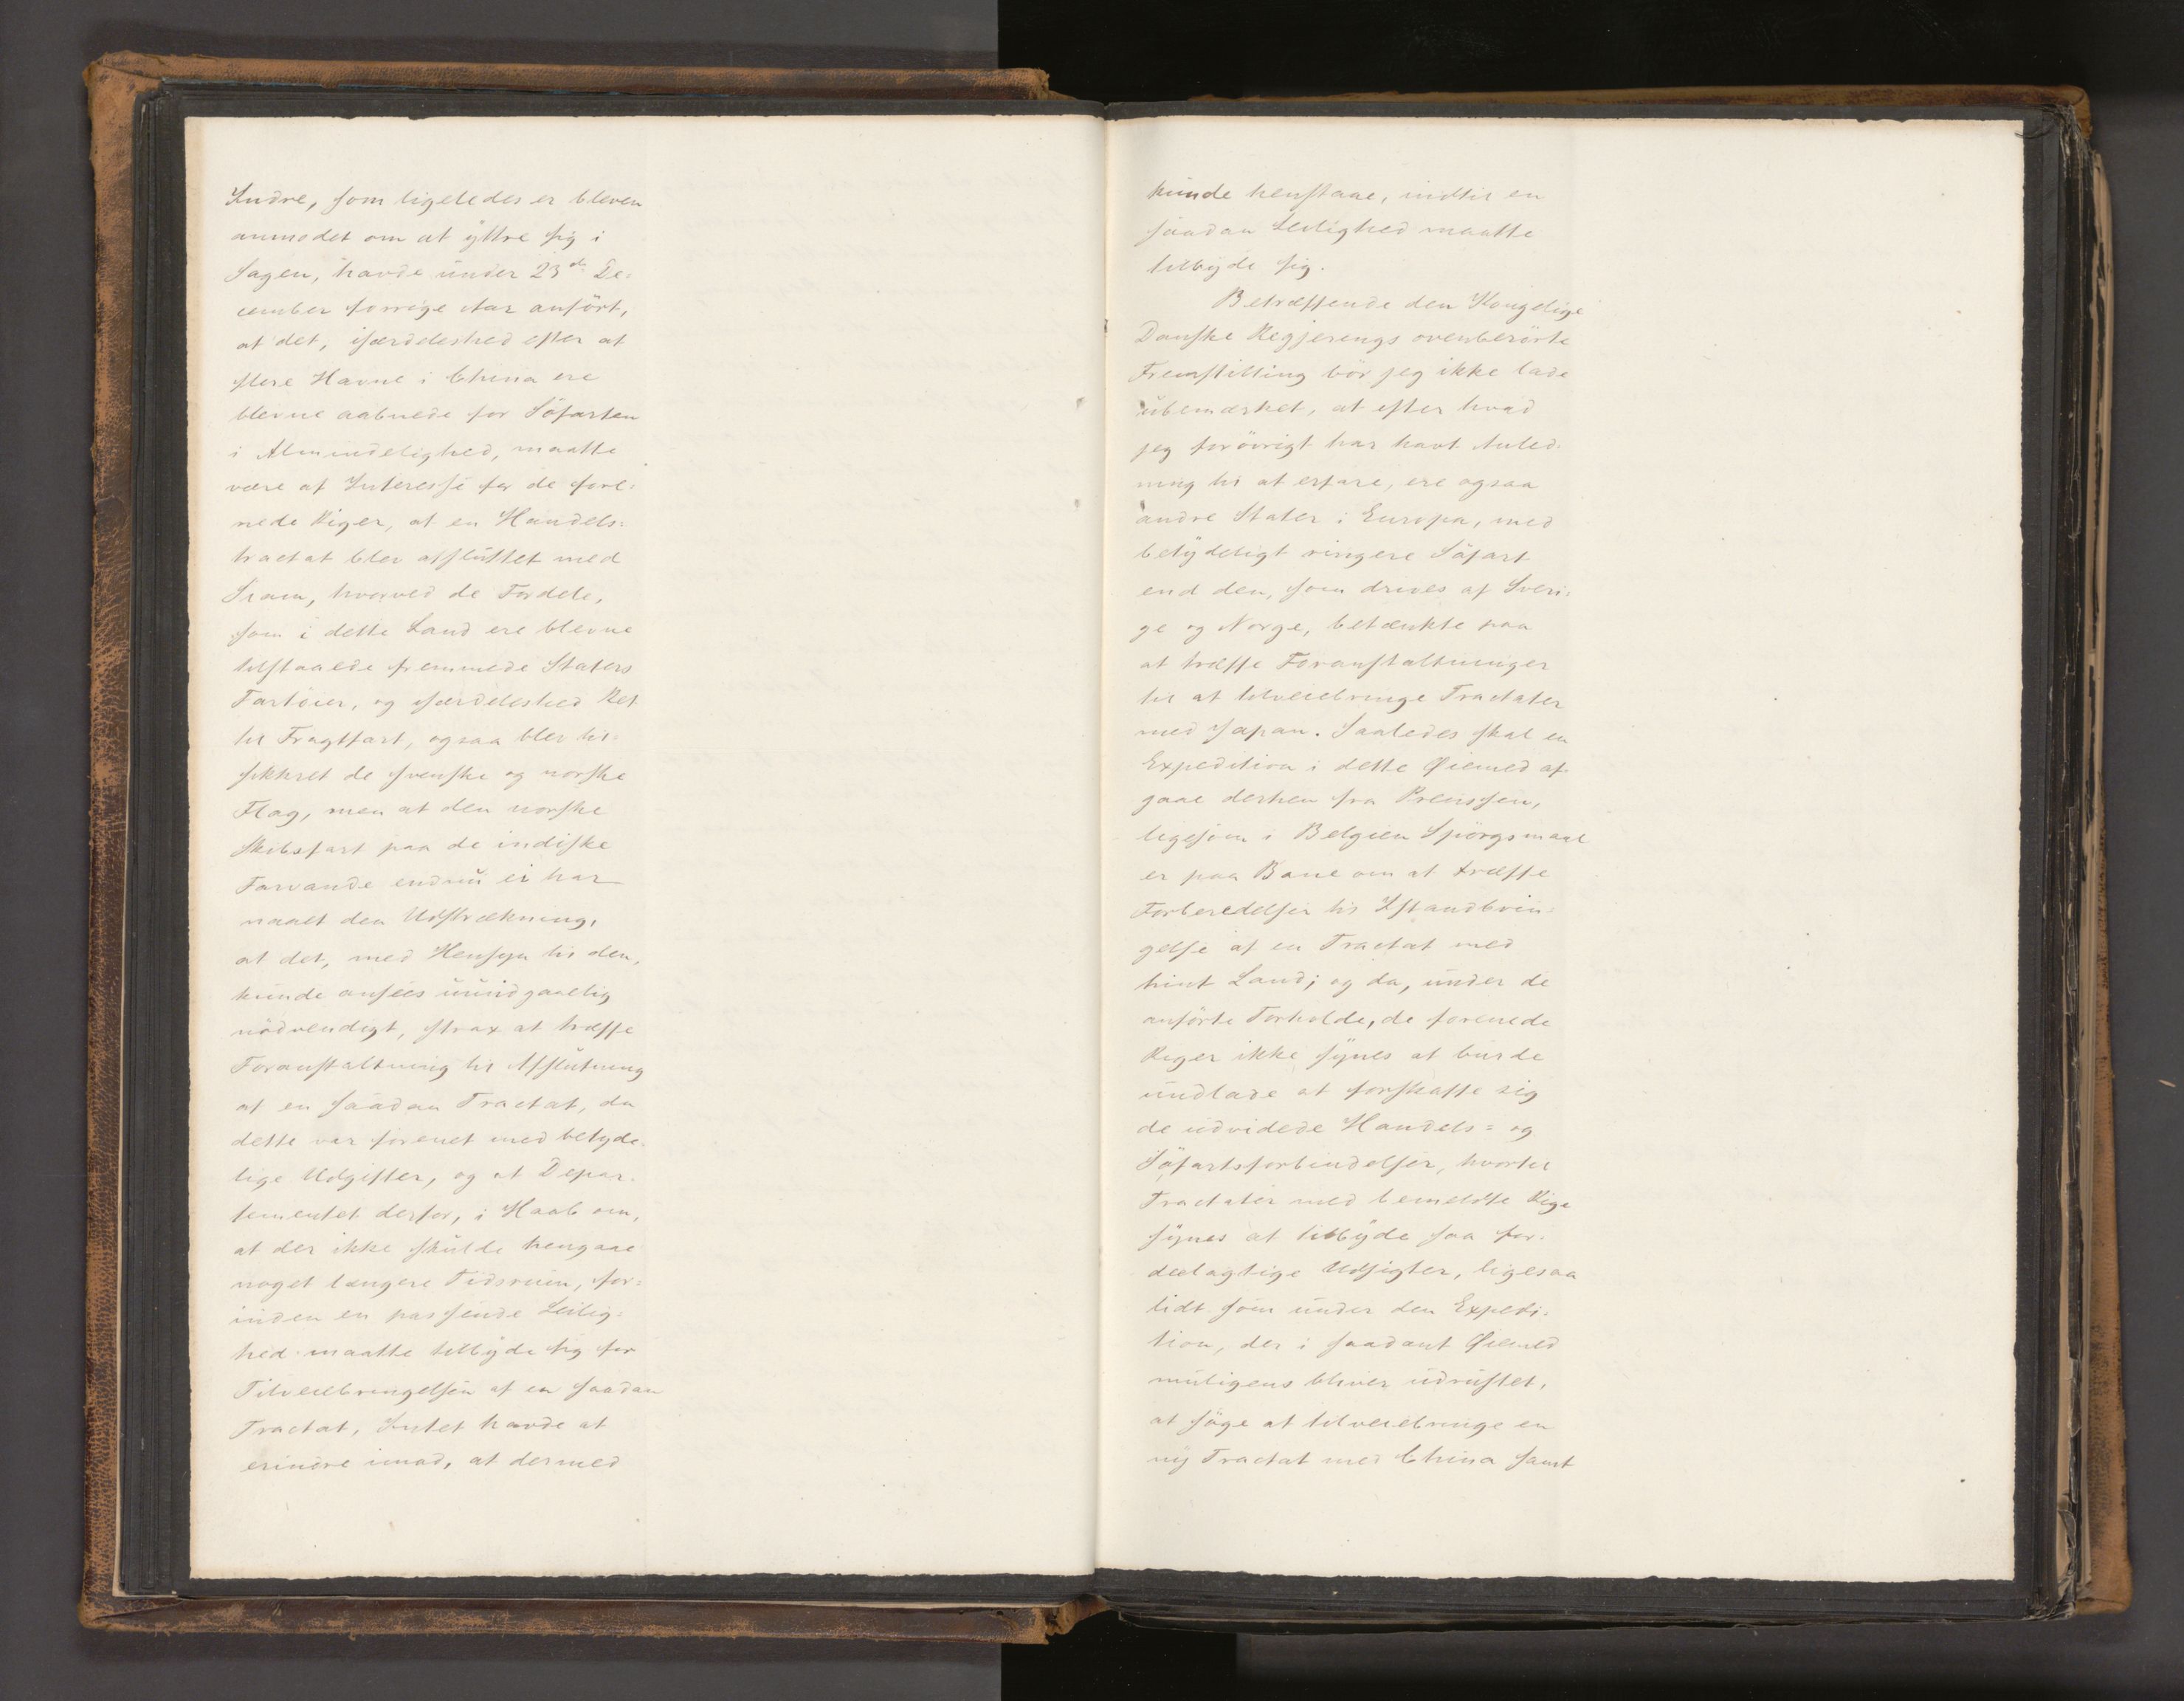 Indre, som ligeledes er bleven
anmodet om at yttre sig i
Sagen, havde under 23de De=
cember forrige Aar anført,
at det, isærdeleshed efter at
flere Havne i China ere
blevne aabnede for Söfarten
i Almindelighed, maatte
være af Interesse for de fore=
nede Riger, at en Handels=
tractat blev afsluttet med
Siam, hvorved de Fordele,
som i dette Land ere blevne
tilstaaede fremmede Staters
Fartöier, og isærdeleshed Ret
til Fragtfart, ogsaa blev til=
sikkret de svenske og norske
Flag, men at den norske
Skibsfart paa de indiske
Farvande endnu ei har
naaet den Udstrækning,
at det, med Hensyn til den,
kunde ansees uundgaaelig
nödvendigt, strax at træffe
Foranstaltning til Afslutning
af en saadan Tractat, da
dette var forenet med betyde=
lige Udgifter, og at Depar=
tementet derfor, i Haab om,
at der ikke skulde hengaae
noget længere Tidsrum, for=
inden en passende Leilig=
hed maatte tilbyde sig for
Tilveiebringelsen af en saadan
Tractat, Intet havde at
erindre imod, at dermed
kunde henstaae, indtil en
saadan Leilighed maatte
tilbyde sig.
Betræffende den Kongelige
Danske Regjerings ovenberörte
Fremstilling bör jeg ikke lade
ubemærket, at efter hvad
jeg forövrigt har havt Anled=
ning til at erfare, ere ogsaa
andre Stater i Europa, med
betydeligt ringere Söfart
end den, som drives af Sveri=
ge og Norge, betænkte paa
at træffe Foranstaltninger
til at tilveiebringe Tractater
med Japan. Saaledes skal en
Expedition i dette Øiemed af=
gaae derhen fra Preussen,
ligesom i Belgien Spörgsmaal
er paa Bane om at træffe
Forberedelser til Istandbrin=
gelse af en Tractat med
hint Land; og da, under de
anførte Forholde, de forenede
Riger ikke synes at burde
undlade at forskaffe sig
de udvidede Handels= og
Söfartsforbindelser, hvortil
Tractater med bemeldte Rige
synes at tilbyde saa for=
deelagtige Udsigter, ligesaa
lidt som under den Expedi=
tion, der i saadant Øiemed
muligens bliver udrustet,
at söge at tilveiebringe en
ny Tractat med China samt